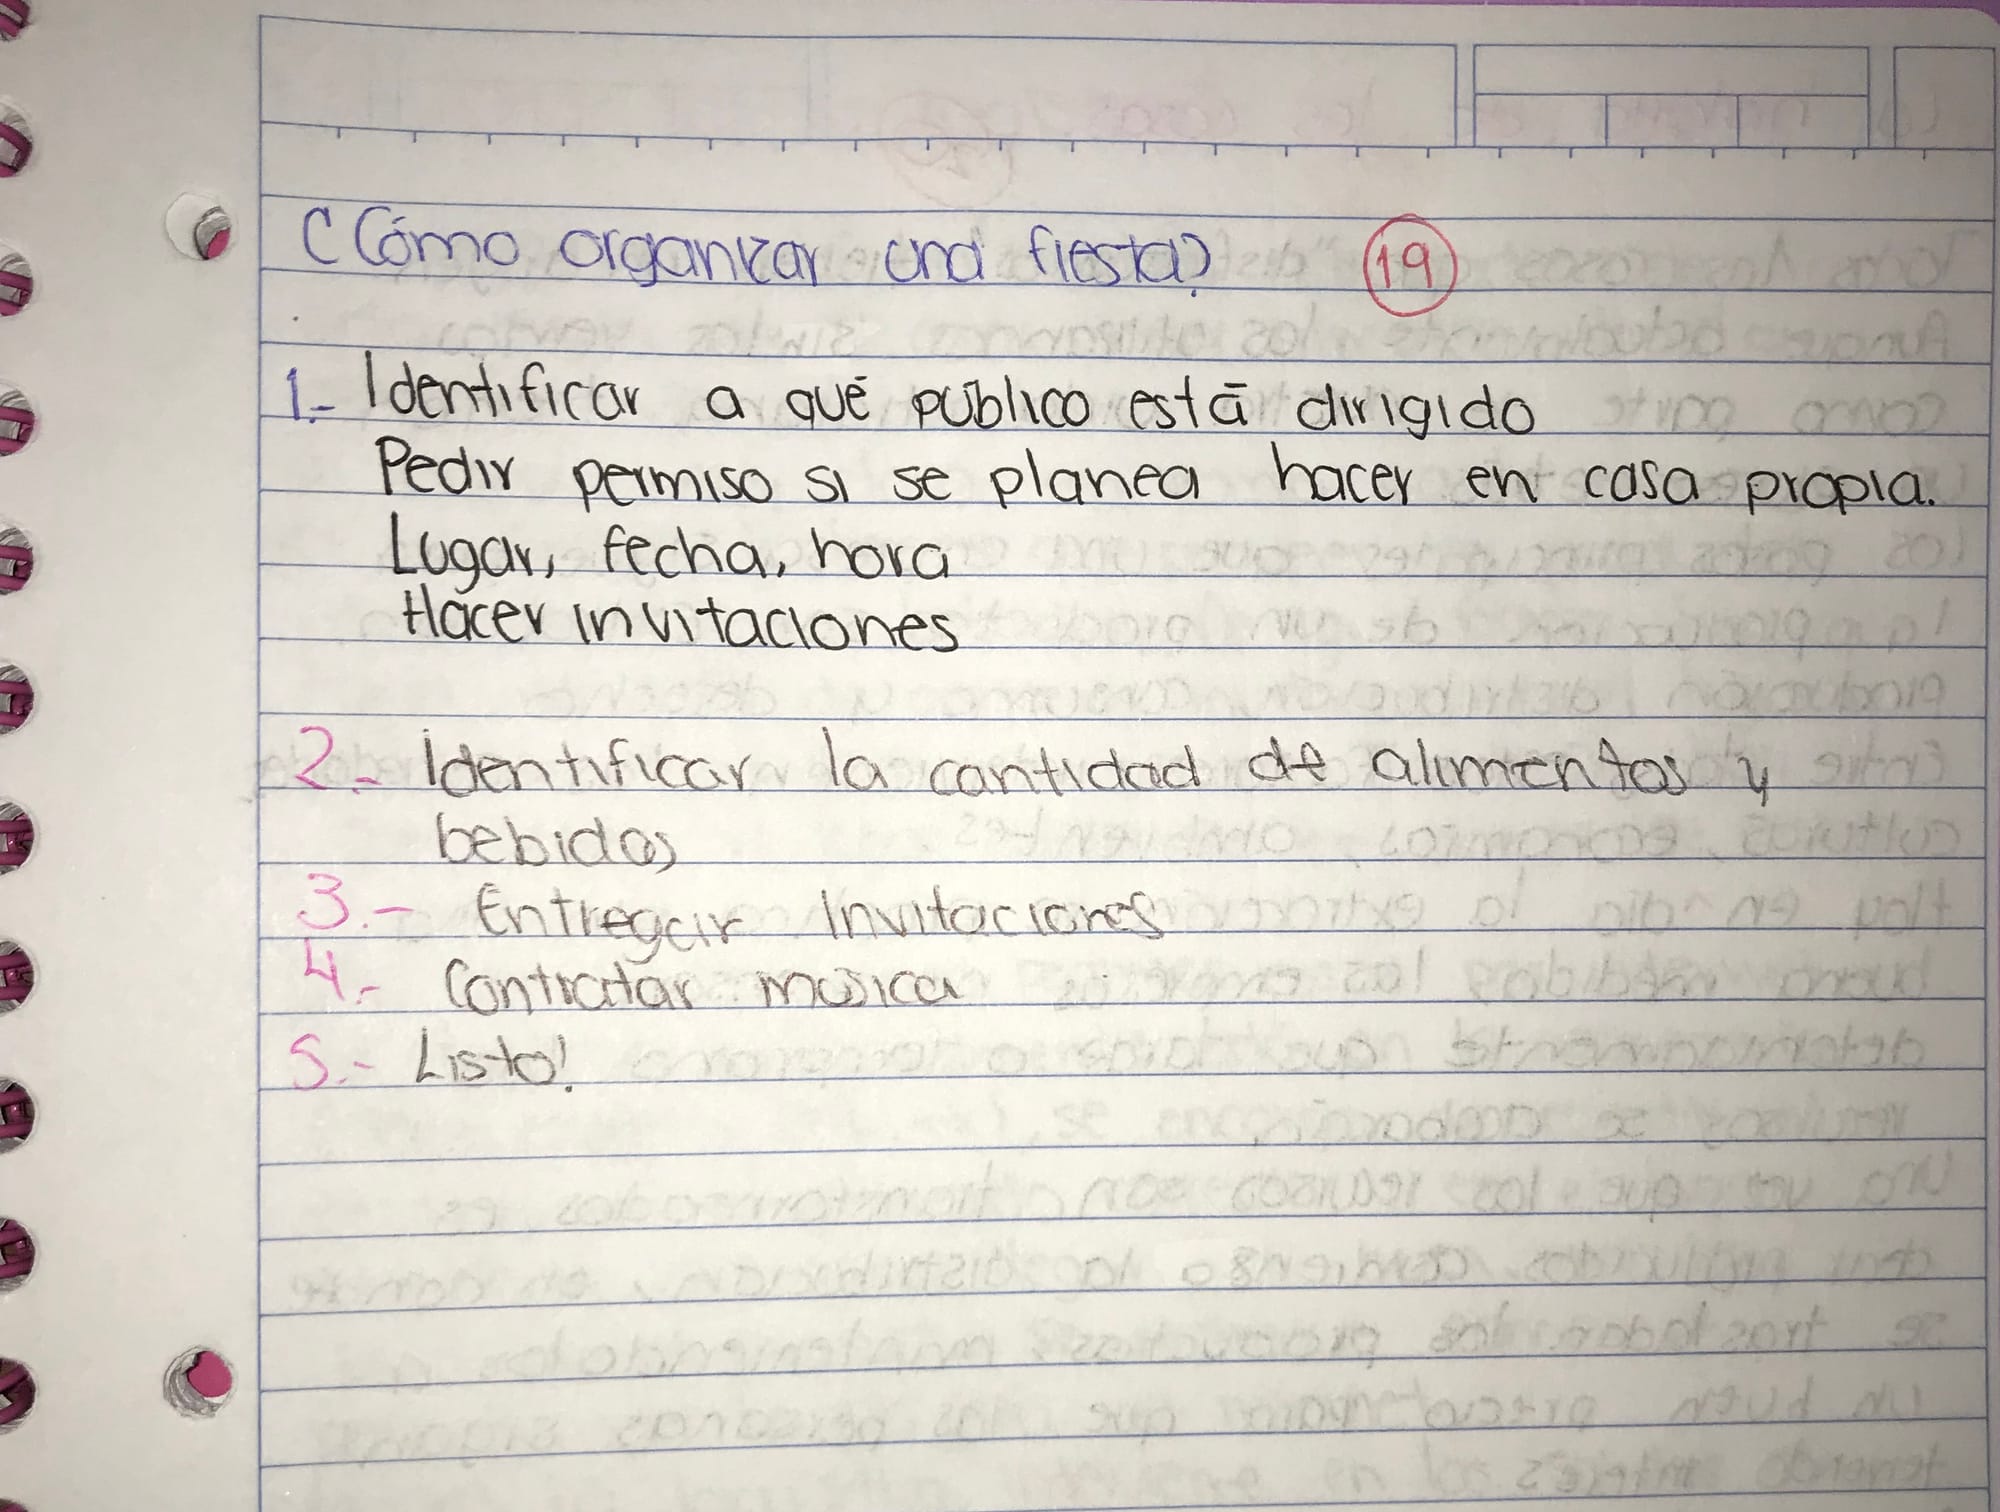 ¿Cómo organizar una fiesta? 19
1.- Identificar a qué público está dirigido
Pedir permiso si se planea hacer en casa propia.
Lugar, fecha, hora
Hacer invitaciones
2.- Identificar la cantidad de alimentos y
bebidas
3.- Entregar Invitaciones
4.- Contratar música
5.- Listo!